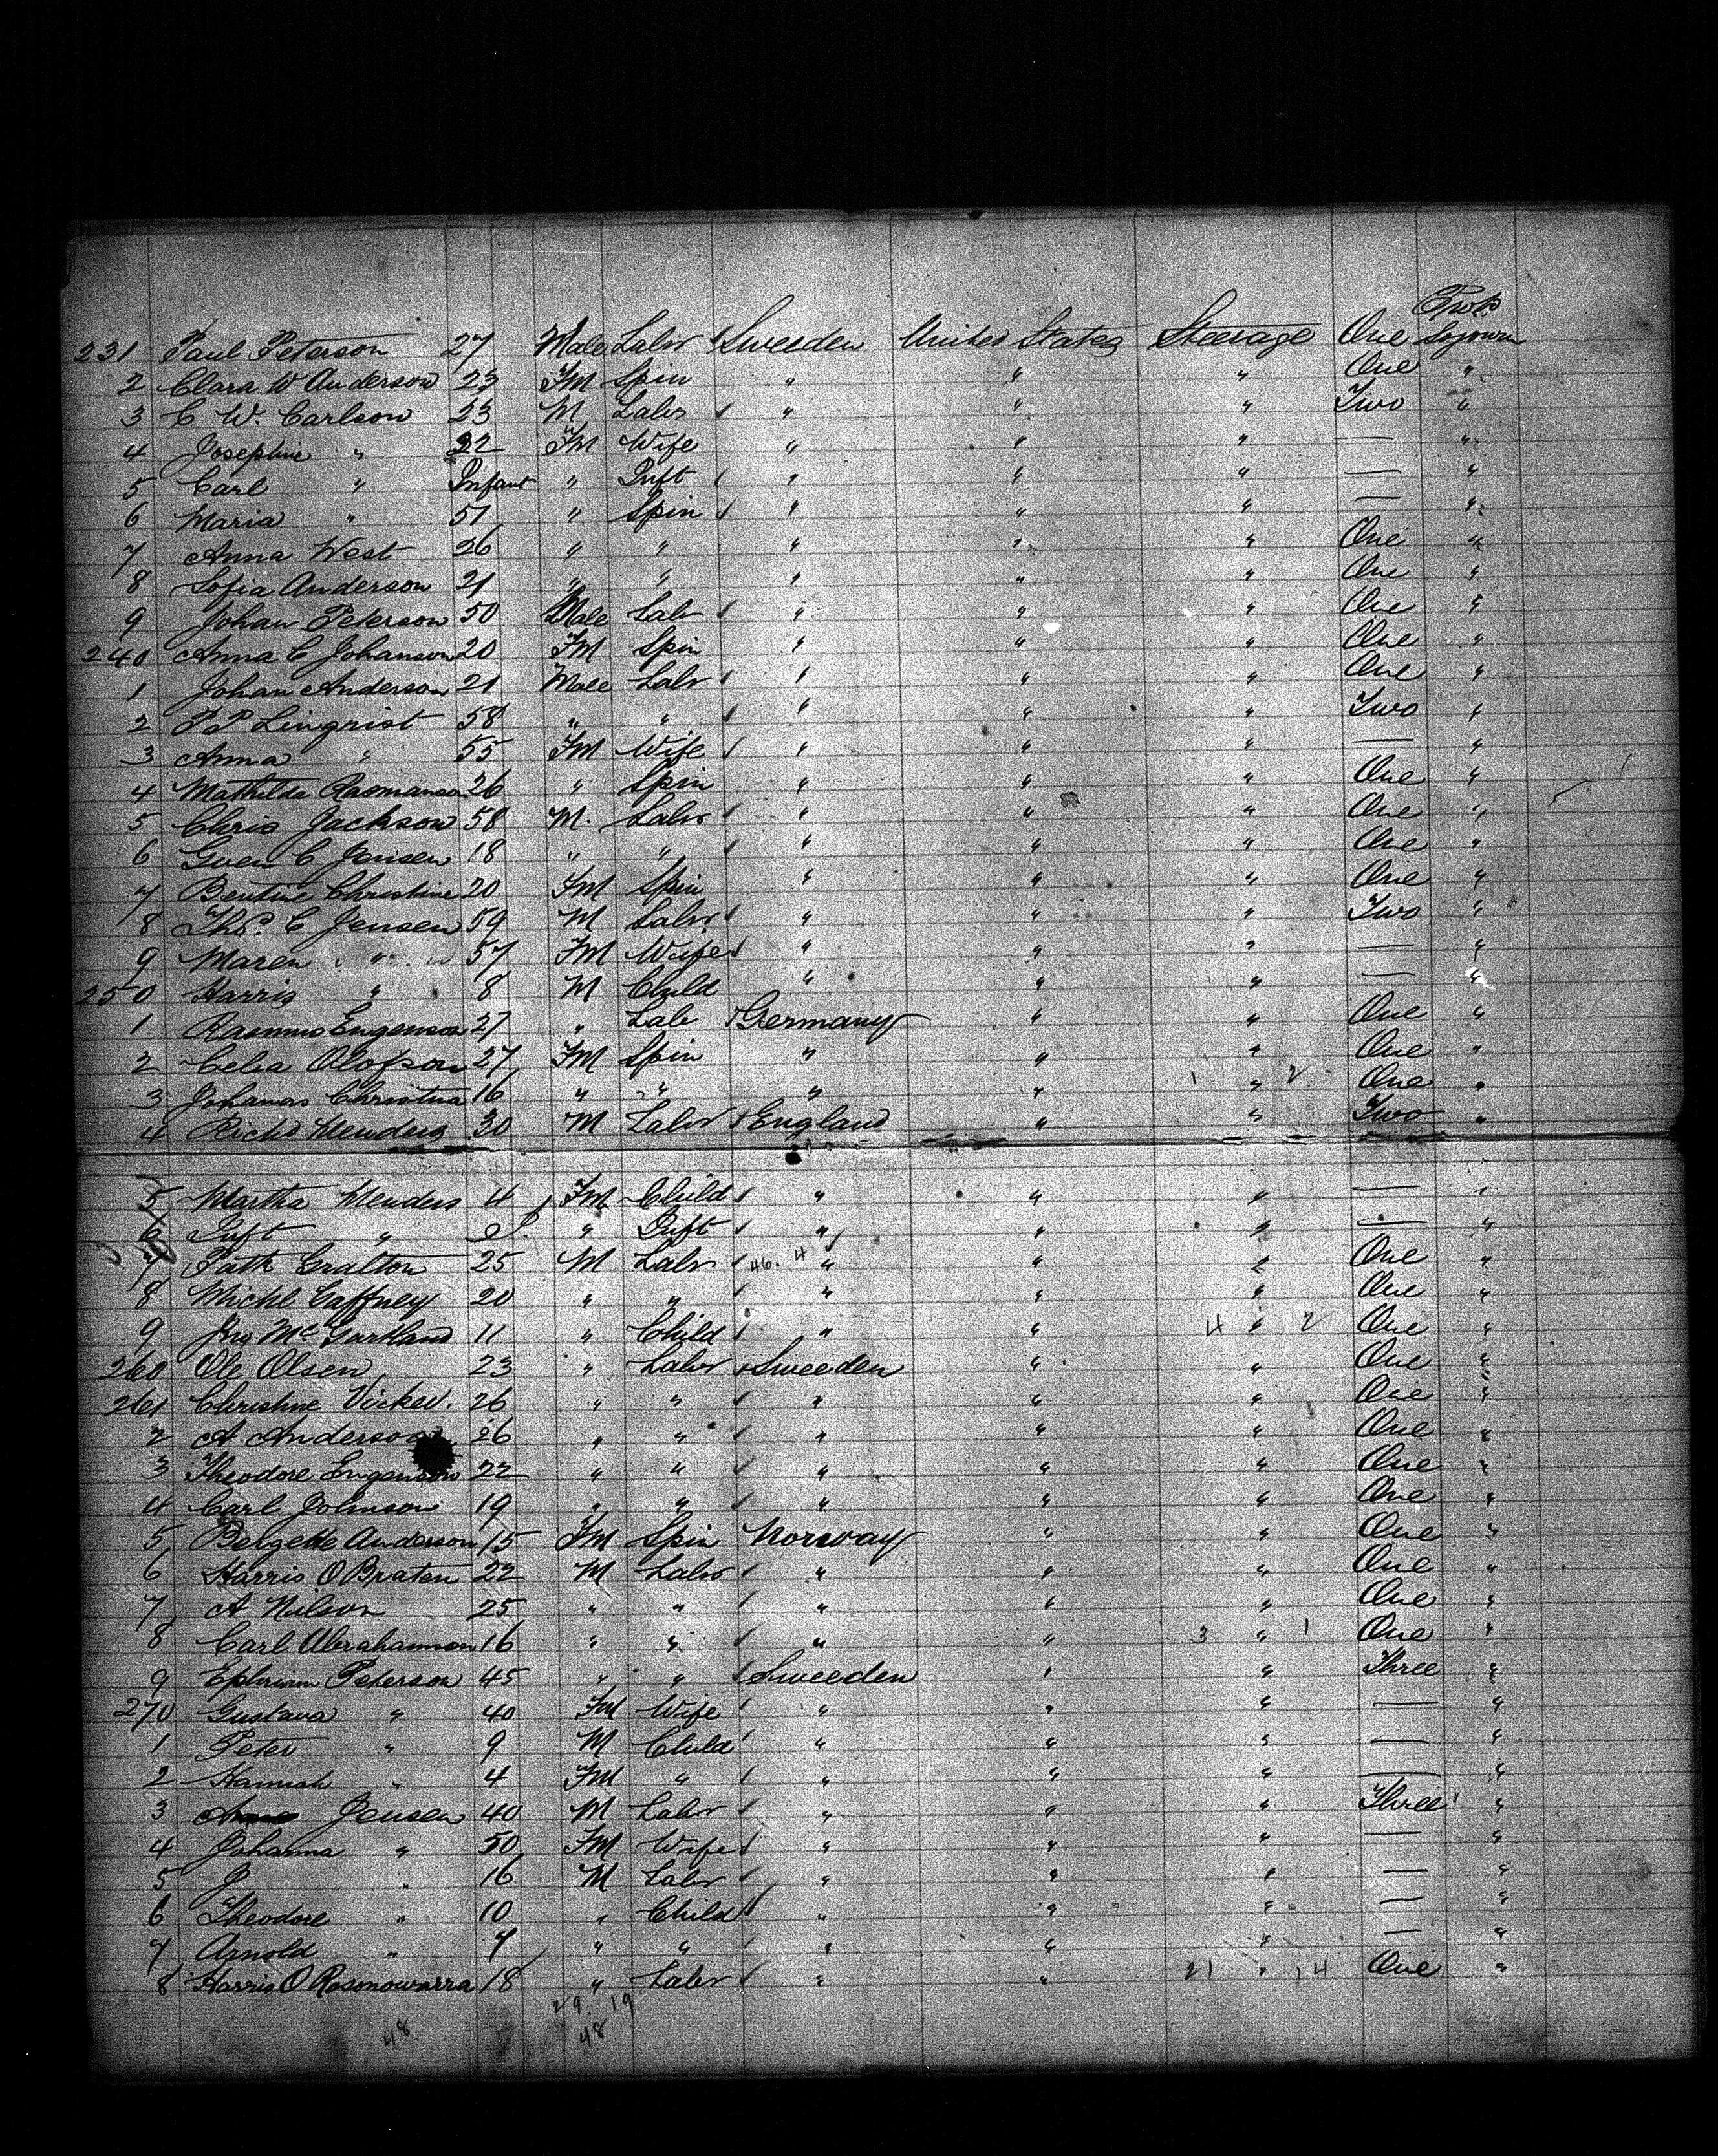 Prot.
231 Paul Peterson 27 Male Labr Sweeden United States Steerage One Sojourn
2 Clara W Anderson 23 FM Spin " " " One "
3 C W. Carlson 23 M Labr " " " Two "
4 Josephine " 22 FM Wife " " " — "
5 Carl " Infant " Inft " " " — "
6 Maria " 51 " Spin " " " — "
7 Anna West 26 " " " " " One "
8 Sofia Anderson 21 " " " " " One "
9 Johan Peterson 50 Male Labr " " " One "
240 Anna C Johanson 20 FM Spin " " " One "
1 Johan Anderson 21 Male Labr " " " One "
2 P P Linqrist 58 " " " " " Two "
3 Anna " 55 FM Wife " " " — "
4 Mathilda Rasmanson 26 " Spin " " " One "
5 Chris Jackson 58 M. Labr " " " One "
6 Gven C Jensen 18 " " " " " One "
7 Bentine Christine 20 FM Spin " " " One "
8 Thos. C Jensen 59 M Labr " " " Two "
9 Maren " 57 FM Wife " " " — "
250 Harris " 8 M Child " " " — "
1 Rasmus Engenson 27 " Labr Germany " " One "
2 Celia Olofson 27 FM Spin " " " One "
3 Johanas Christina 16 " " " " 1 " 2 One "
4 Richd Menders 30 M Labr England " " Two "
5 Martha Menders 4 FM Child " " " — "
6 Inft " I. " Inft " " " — "
7 Patk Gralton 25 M Labr 46. 4 " " " One "
8 Michl Gaffney 20 " " " " " One "
9 Jno McGartland 11 " Child " " 4 " 2 One "
260 Ole Olsen 23 " Labr Sweeden " " One "
261 Christine Vicked. 26 " " " " " One "
2 A Anderson 26 " " " " " One "
3 Theodore Engenson 22 " " " " " One "
4 Carl Johnson 19 " " " " " One "
5 Bergette Anderson 15 FM Spin Norway " " One "
6 Harris O Braten 22 M Labr " " " One "
7 A Nilson 25 " " " " " One "
8 Carl Abrahamson 16 " " " " 3 " 1 One "
9 Ephriam Peterson 45 " " Sweeden " " Three "
270 Gustava " 40 FM Wife " " " — "
1 Peter " 9 M Child " " " — "
2 Hannah " 4 FM " " " " — "
3 Jensen 40 M Labr " " " Three "
4 Johanna " 50 FM Wife " " " — "
5 J " 16 M Labr " " " — "
6 Theodore " 10 " Child " " " — "
7 Arnold " 7 " " " " " — "
8 Harris O Rosonowarra 18 " Labr " " 21 " 14 One "
29. 19
48 48